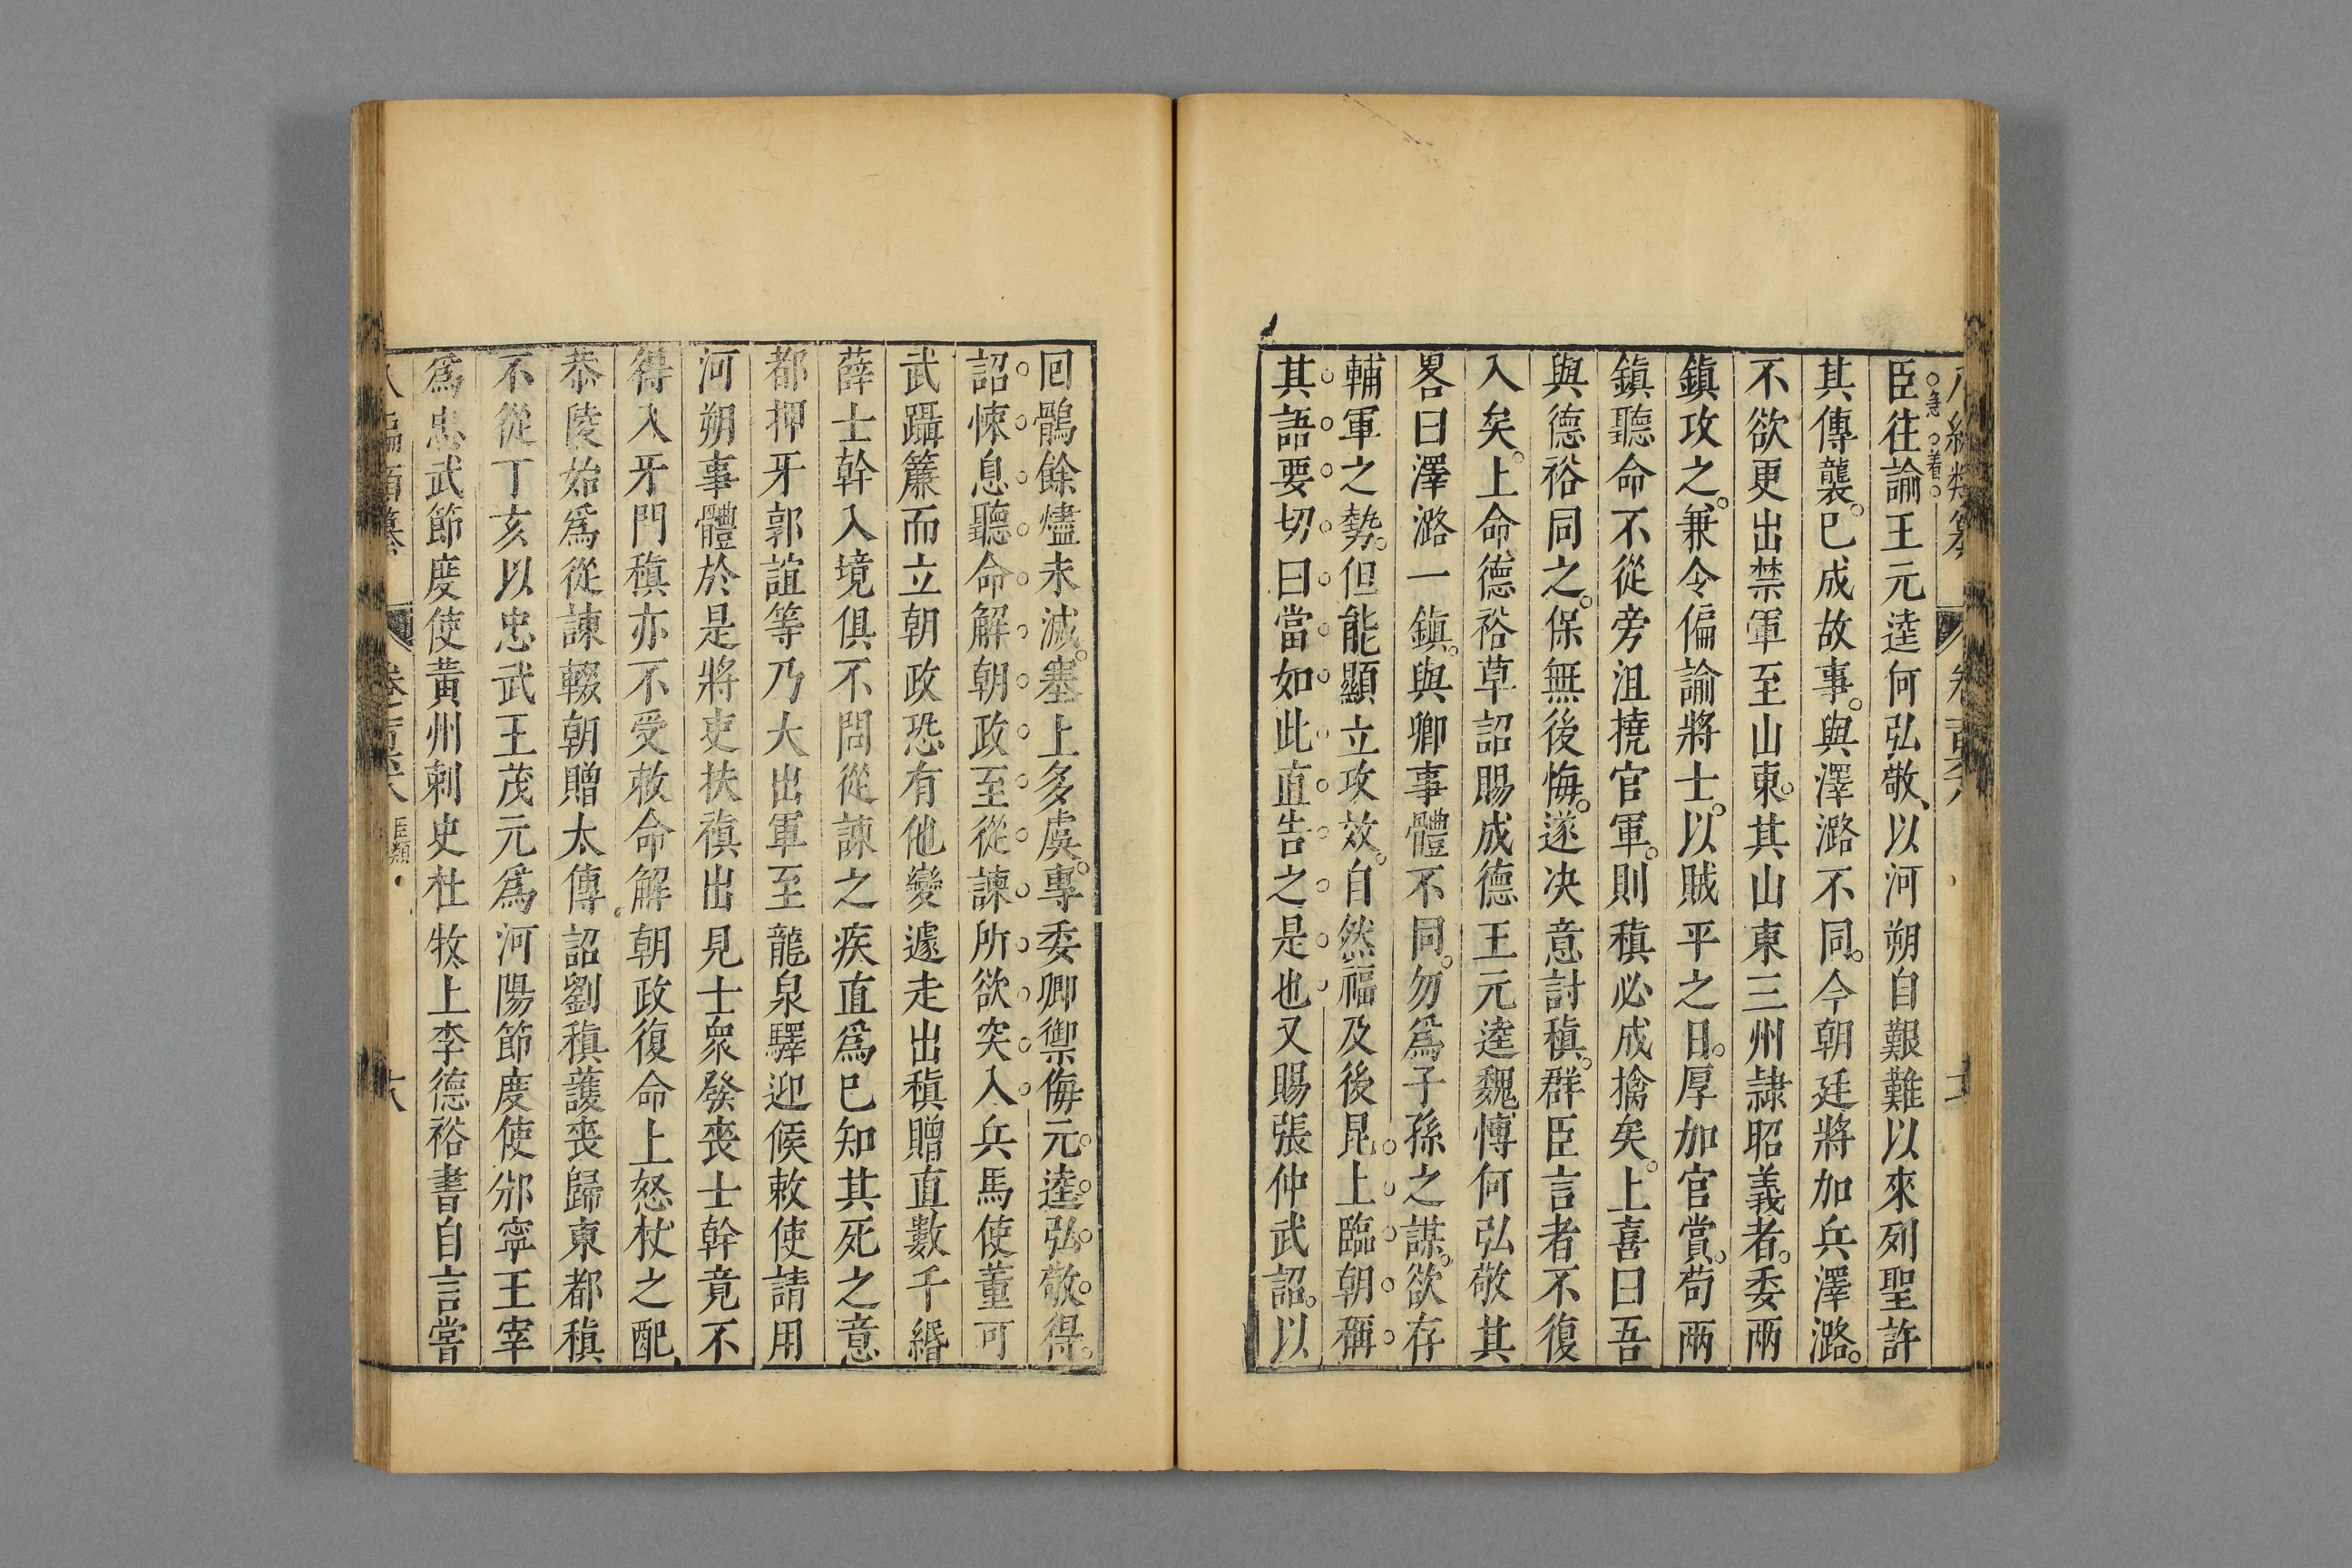 急着
臣往諭王元逵何弘敬、以河朔自艱難以來列聖許
其傳襲。已成故事。與澤潞不同。今朝廷將加兵澤潞。
不欲更出禁軍至山東。其山東三州隷昭義者。委兩
鎮攻之。兼令偏諭將士。以賊平之日。厚加官賞。苟兩
鎮聽命不從旁沮撓官軍。則稹必成擒矣。上喜曰吾
與德裕同之。保無後悔。遂决意討稹。群臣言者不復
入矣。上命德裕草詔賜成德王元逵魏博何弘敬其
畧曰澤潞一鎮。與卿事體不同。勿爲子孫之謀。欲存
輔軍之勢。但能顯立攻效。自然福及後昆。上臨朝稱
其語要切曰當如此直告之是也又賜張仲武詔。以
回鶻餘燼未滅。塞上多虞。專委卿禦侮元逵弘敬得。
詔悚息聽命解朝政至從諫所欲突入兵馬使董可
武躡簾而立朝政恐有他變遽走出稹贈直數千緡
薛士幹入境俱不問從諫之疾直爲已知其死之意
都押牙郭誼等乃大出軍至龍泉驛迎候敕使請用
河朔事體於是將吏扶稹出見士衆發喪士幹竟不
得入牙門稹亦不受敕命解朝政復命上怒杖之配
恭陵始爲從諫輟朝贈太傅詔劉稹護喪歸東都稹
不從丁亥以忠武王茂元爲河陽節度使邠寧王宰
爲忠武節度使黃州刺史杜牧上李德裕書自言嘗